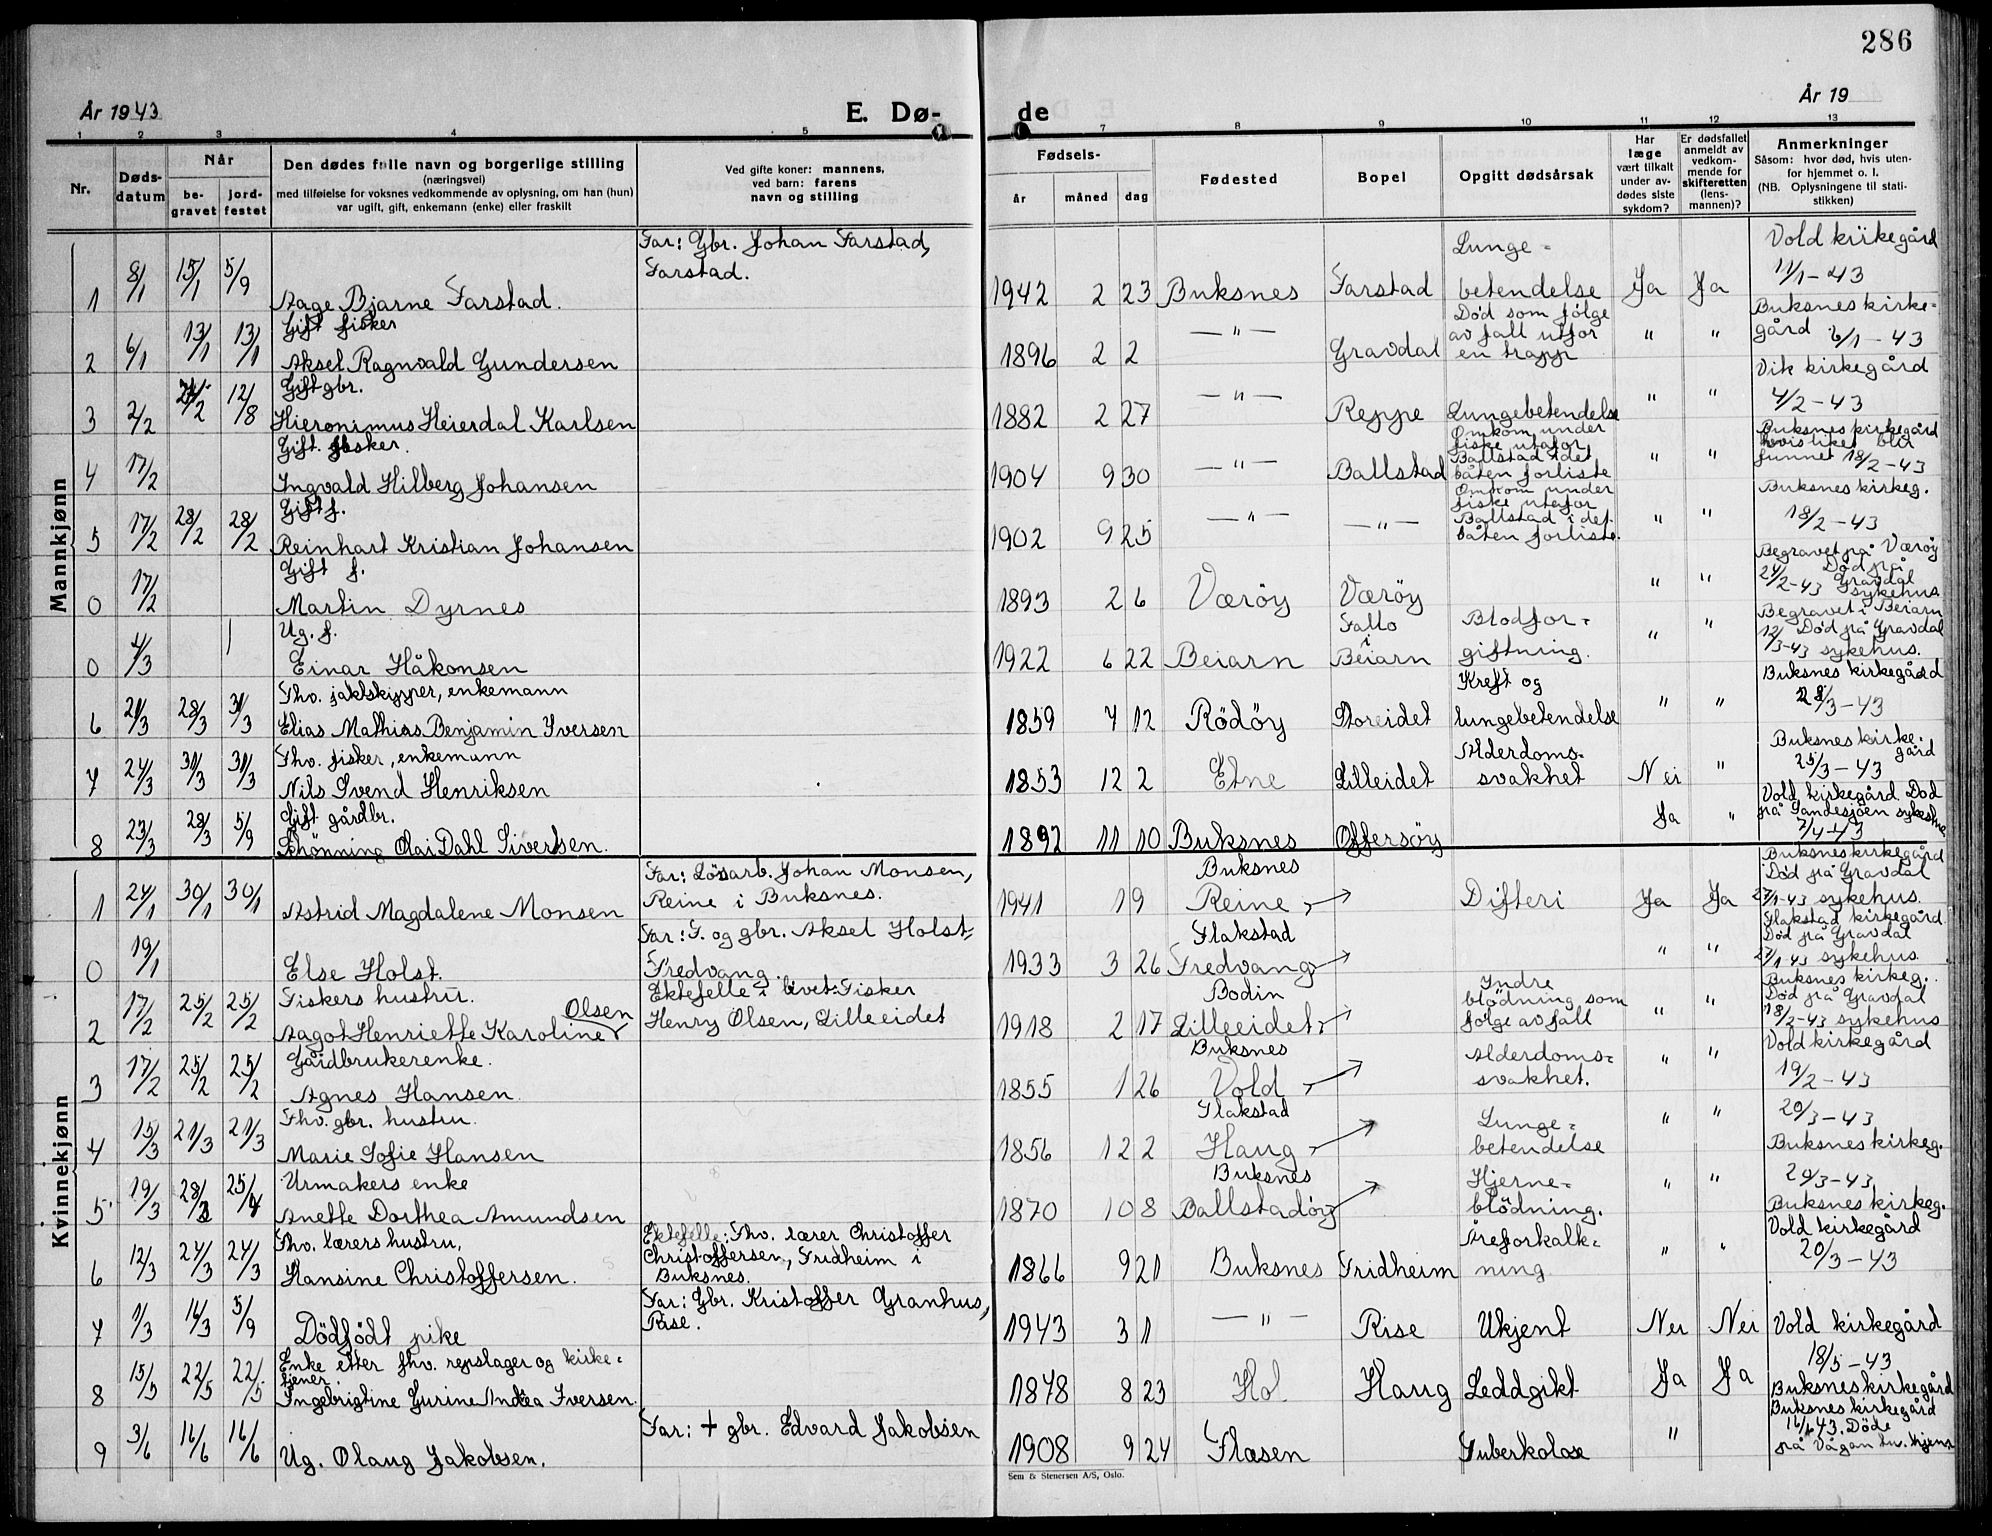 286
År 1943 E. Dø- de År 19
1 2 3 4 5 7 8 9 10 11 12 13
Nr. Døds-datum Når be-gravet jord-festet
Den dødes fulle navn og borgerlige stilling
(næringsvei)
med tilføielse for voksnes vedkommende av oplysning, om han (hun)
var ugift, gift, enkemann (enke) eller fraskilt
Ved gifte koner: mannens,
ved barn: farens
navn og stilling
Fødsels- år måned dag
Fødested
Bopel
Opgitt dødsårsak
Har læge vært tilkalt under av-dødes siste sykdom?
Er dødsfallet anmeldt av vedkom-mende for skifteretten (lens-mannen)?
Anmerkninger
Såsom: hvor død, hvis uten-for hjemmet o. l.
(NB. Oplysningene til stati-stikken)
Mannkjønn
1 8/1 15/1 5/9 Aage Bjarne Farstad. Far: Gbr. Johan Farstad, Farstad. 1942 2 23 Buksnes Farstad Lunge-betendelse Ja Ja Vold kirkegård 11/1-43
2 6/1 13/1 13/1 Gift fisker Aksel Ragnvald Gundersen 1896 2 2 —"— Gravdal Død som følge av fall utfor en trapp " " Buksnes kirke-gård 6/1-43
3 2/2 12/8 Gift gbr. Hieronimus Heierdal Karlsen 1882 2 27 —"— Reppe Lungebetendelse " " Vik kirkegård 4/2-43
4 17/2 Gift fisker. Ingvald Hilberg Johansen 1904 9 30 —"— Ballstad Omkom under fiske utafor Ballstad i det båten forliste " " Buksnes kirkegård hvis liket blir funnet 18/2-43
5 17/2 28/2 28/2 Gift f. Reinhart Kristian Johansen 1902 9 25 —"— —"— Omkom under fiske utafor Ballstad i det båten forliste. " " Buksnes kirkeg. 18/2-43
0 17/2 Gift f. Martin Dyrnes 1893 2 6 Værøy Værøy " " Begravet på Værøy Død på 24/2-43 Gravdal sykehus
0 4/3 Ug. f. Einar Håkonsen 1922 6 22 Beiarn i Beiarn Blodfor-giftning. " " Begravet i Beiarn 12/3-43 Død på Gravdal sykehus.
6 21/3 28/3 31/3 Fhv. jaktskipper, enkemann Elias Mathias Benjamin Iversen 1859 7 12 Rödöy Storeidet Kreft og lungebetendelse " " Buksnes kirkegård 28/3-43
7 24/3 31/3 31/3 Fhv. fisker, enkemann Nils Svend Henriksen 1853 12 2 Etne Lilleidet Alderdoms-svakhet Nei " Buksnes kirke-gård 25/3-43
8 23/3 28/3 5/9 Gift gårdbr. Schönning Olai Dahl Sivertsen. 1892 11 10 Buksnes Offersöy Ja " Vold kirkegård Død på Sandesjöen sykehus 7/4-43
Kvinnekjønn
1 24/1 30/1 30/1 Astrid Magdalene Monsen Far: Lösarb. Johan Monsen, Reine i Buksnes. 1941 1 9 Buksnes Reine Difteri Ja Ja Buksnes kirkegård Död på Gravdal 27/1-43 sykehus.
0 19/1 Else Holst. Far: F. og gbr. Aksel Holst, Fredvang. 1933 3 26 Flakstad Fredvang " " Flakstad kirkegård Död på Gravdal 27/1-43 sykehus.
2 17/2 25/2 25/2 Fiskers hustru. Aagot Henriette Karoline Olsen Ektefelle i livet: Fisker Henry Olsen, Lilleeidet 1918 2 17 Bodin Lilleeidet Indre blödning som følge av fall " " Buksnes kirkeg. Död på Gravdal 18/2-43 sykehus
3 17/2 25/2 25/2 Gårdbrukerenke. Agnes Hansen 1855 1 26 Buksnes Vold Alderdoms-svakhet. " " Vold kirkegård 19/2-43
4 15/3 21/3 21/3 Fhv. gbr. hustru. Marie Sofie Hansen 1856 12 2 Flakstad Haug Lunge-betendelse " " 20/3-43 Buksnes kirkeg.
5 19/3 28/3 25/4 Urmakers enke Anette Dorthea Amundsen 1870 10 8 Buksnes Ballstadöy Hjerne-blödning. " " 20/3-43 Buksnes kirkeg.
6 12/3 24/3 24/3 Fhv. lærers hustru, Hansine Christoffersen. Ektefelle: Fhv. lærer Christoffer Christoffersen, Fridheim i Buksnes. 1866 9 21 Buksnes Fridheim Åreforkalk-ning " " Vold kirkegård 20/3-43
7 1/3 16/3 5/9 Dödfödt pike Far: Gbr. Kristoffer Granhus, Rise. 1943 3 1 —"— Rise Ukjent Nei Nei Vold kirkegård
8 15/5 22/5 22/5 Enke etter fhv. repslager og kirke-tjener. Ingebrigtine Gurine Andrea Iversen. 1878 8 23 Hol Haug Leddgikt Ja Ja 18/5-43 Buksnes kirkegård
9 3/6 16/6 16/6 Ug. Olaug Jakobsen. Far: + gbr. Edvard Jakobsen 1908 9 24 Flæsen Tuberkolose " Buksnes kirkegård 16/6 43. Döde på Vågan
Sem & Stenersen A/S, Oslo.